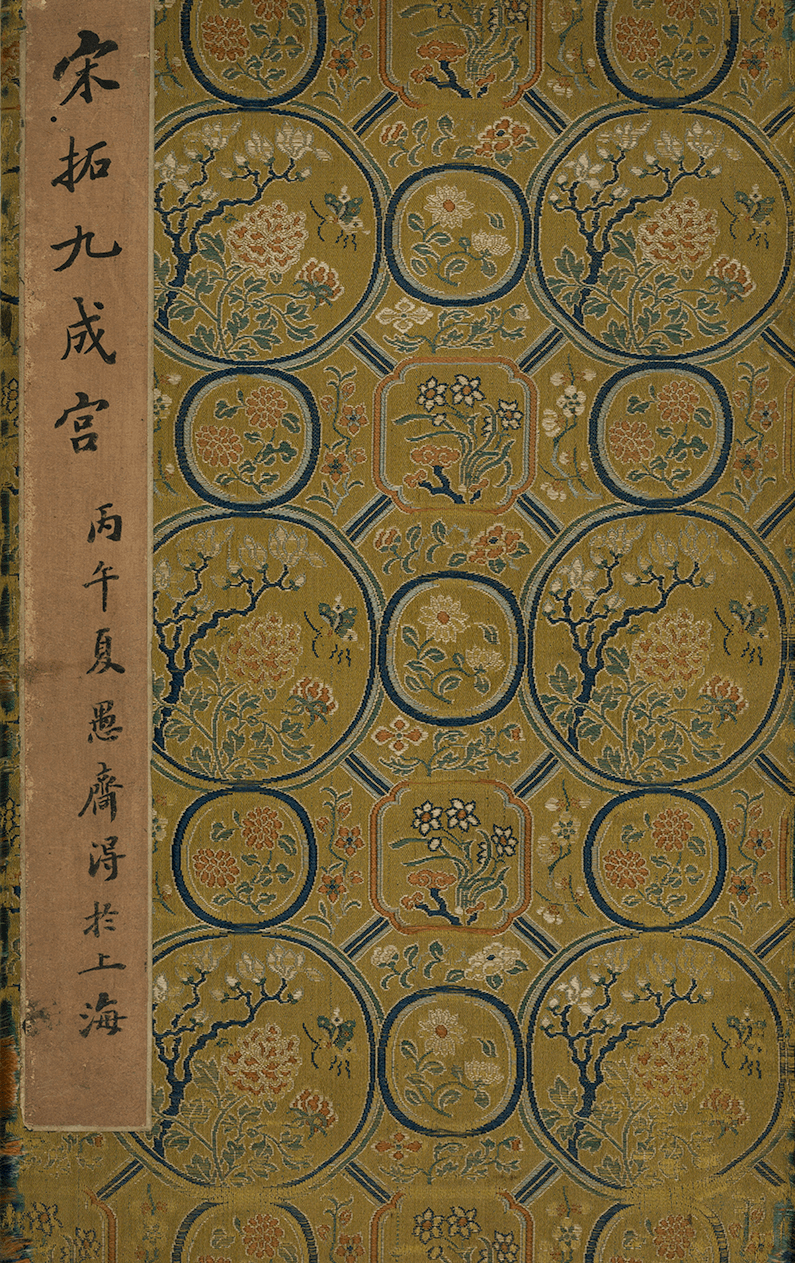 宋拓九成宫
丙午夏愚齋得於上海